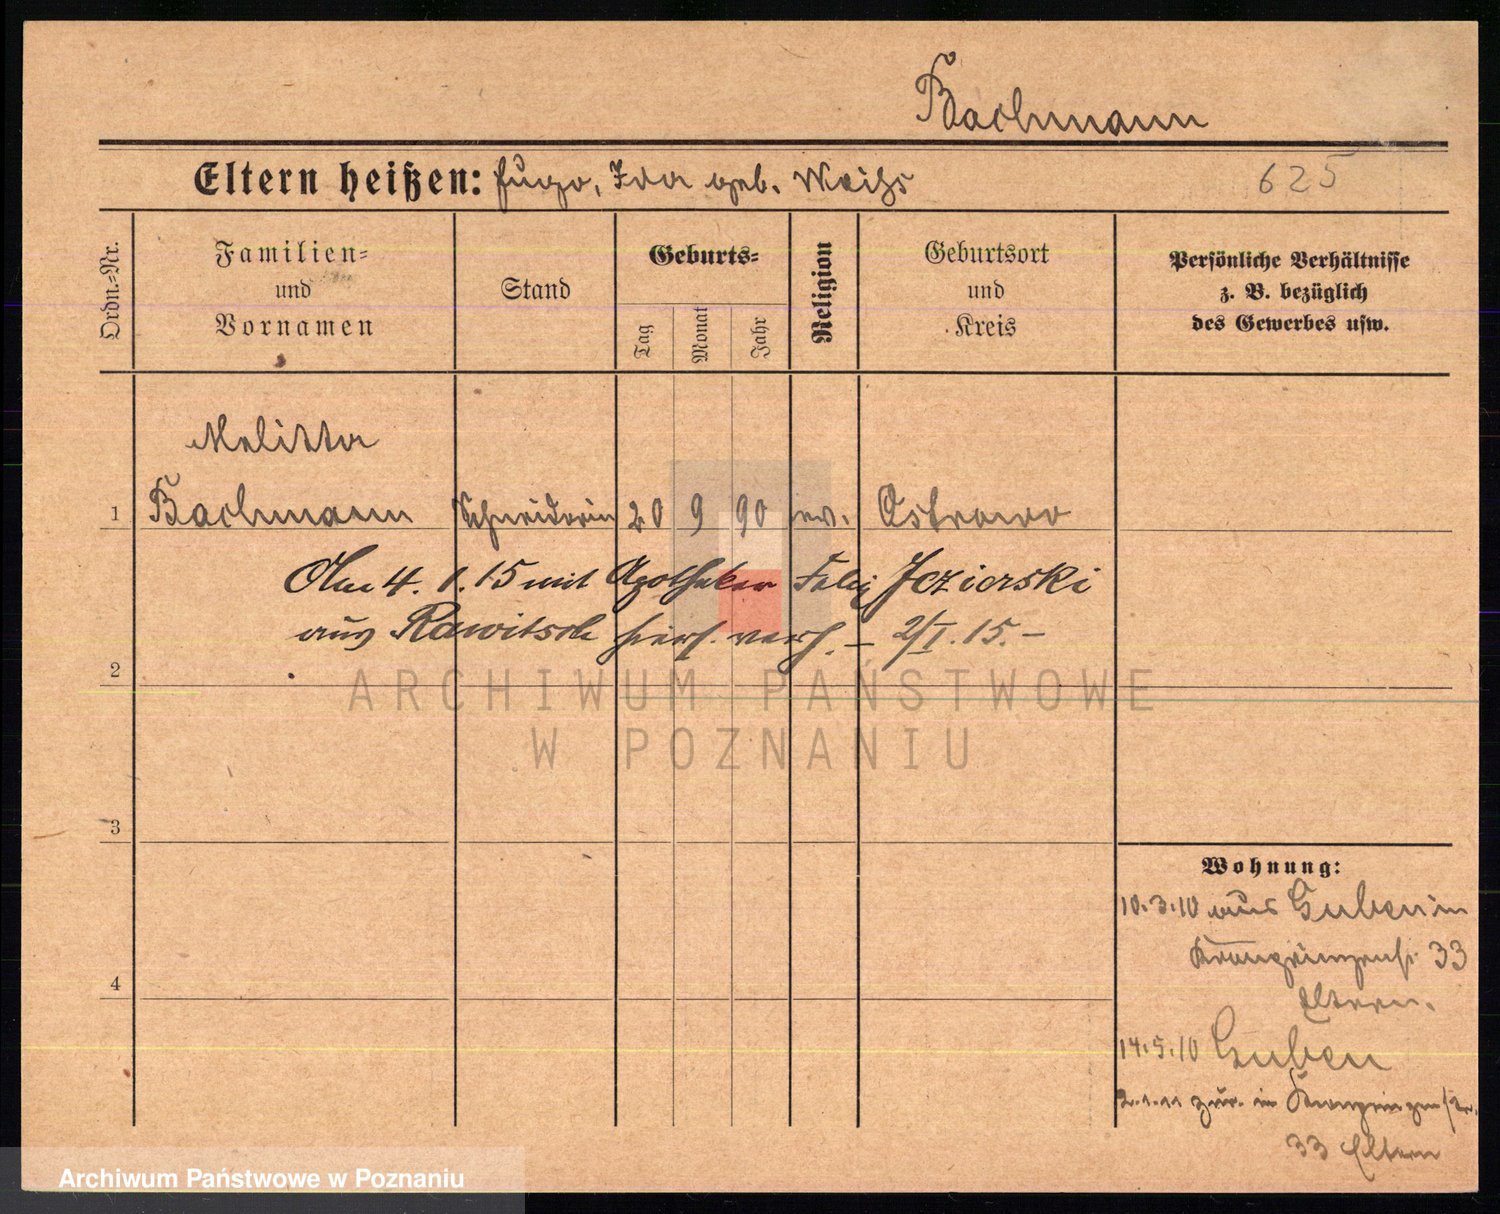 Bachmann
Eltern heißen: Hugo, Ida geb. Weihs
625
Ordn.-Nr.
Familien- und Vornamen
Stand
Geburts-
Tag
Monat
Jahr
Religion
Geburtsort und Kreis
Persönliche Verhältnisse z. B. bezüglich des Gewerbes usw.
Melitta
1 Bachmann Schneiderin 20 9 90 ev. Ostrowo
Am 4.1.15 mit Apotheker Felix Jezierski
aus Rawitsch hiers. verh. – 2/I.15.–
2
ARCHIWUM PAŃSTWOWE
W POZNANIU
3
Wohnung:
10.3.10 aus Guben in
Kronprinzenst 33
Eltern.
4
14.5.10 Guben
2.1.11 zur. in Kronprinzenstr.
33 Eltern
Archiwum Państwowe w Poznaniu